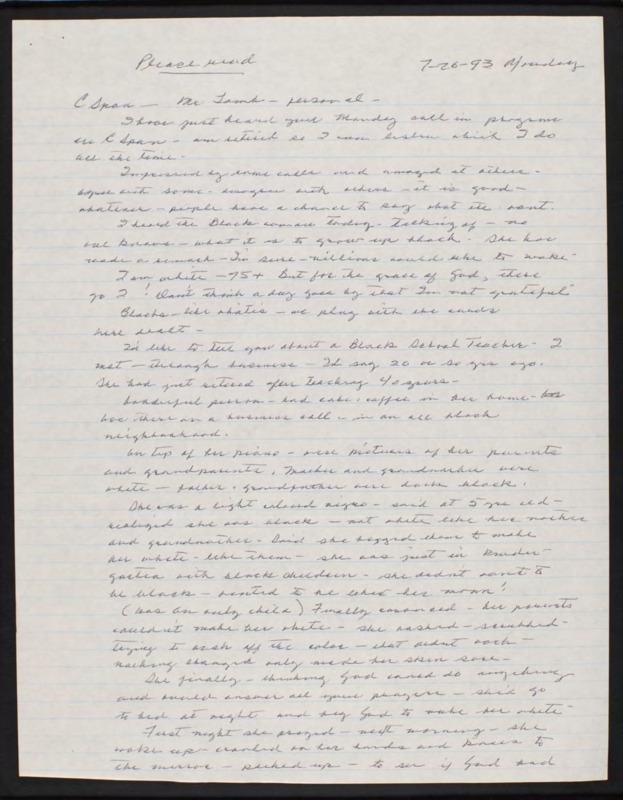 Please read
7-26-93 Monday
C Span - Mr Lamb - personal -
I have just heard your Monday call in program
on C Span - am retired so I can listen which I do
all the time.
Impressed by some calls and amazed at others -
agree with some - disagree with others - it is good -
whatever - people have a chance to say what they want.
I heard the Black woman today - talking of - no
one knows - what it is to grow up black. She has
made a remark - I'm sure - millions would like to make -
I am white - 75+ But for the grace of God, there
go I! Don't think a day goes by that I'm not grateful
Blacks - like whites - we play with the cards
were dealt -
I'd like to tell you about a Black School Teacher - I
met - through business - I'd say 20 or so yrs ago.
She had just retired after teaching 40 years -
Wonderful person - had cake & coffee in her home -
was there on a business call - in an all black
neighborhood.
On top of her piano - were pictures of her parents
and grandparents. Mother and grandmother were
white - father & grandfather were dark black.
She was a light colored negro - said at 5 yrs old -
realized she was black - not white like her mother
and grandmother - Said she begged them to make
her white - like them - she was just in kinder-
garten with black children - she didn't want to
be black - wanted to be like her mom!
(was an only child) Finally convinced - her parents
couldn't make her white - she washed - scrubbed -
trying to wash off the color - that didnt work -
nothing changed only made her skin sore -
She finally - thinking God could do anything
and would answer all your prayers - she'd go
to bed at night and beg God to make her white
First night she prayed - next morning - she
woke up - crawled on her hands and knees to
the mirror - peeked up - to see if God had